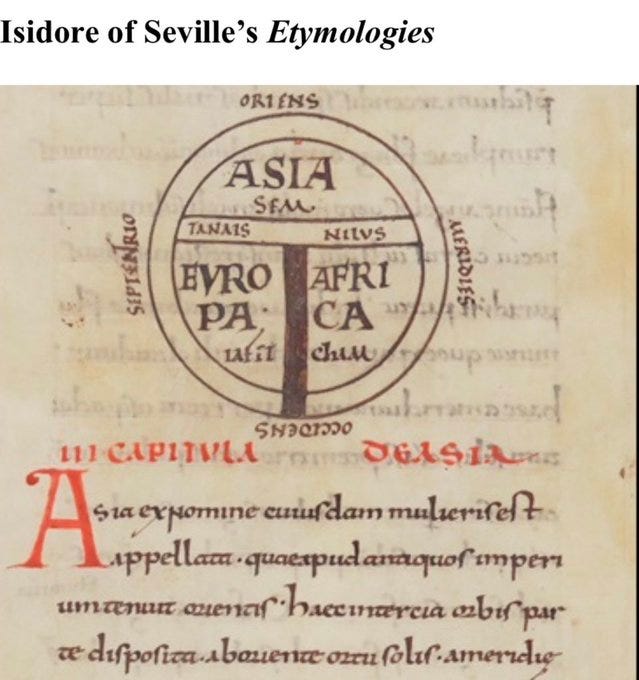 Isidore of Seville's Etymologies
ORIENS
ASIA
SEM
TANAIS NILVS
SEPTENTRIO
MERIDIES
EVRO AFRI
PA CA
iafet cham
OCCIDENS
III CAPITVLA DE ASIA
Asia ex nomine cuiusdam mulieris est
appellata. quae apud antiquos imperi
um tenuit orientis. haec in tercia orbis par
te disposita. ab oriente ortu solis. a meridie